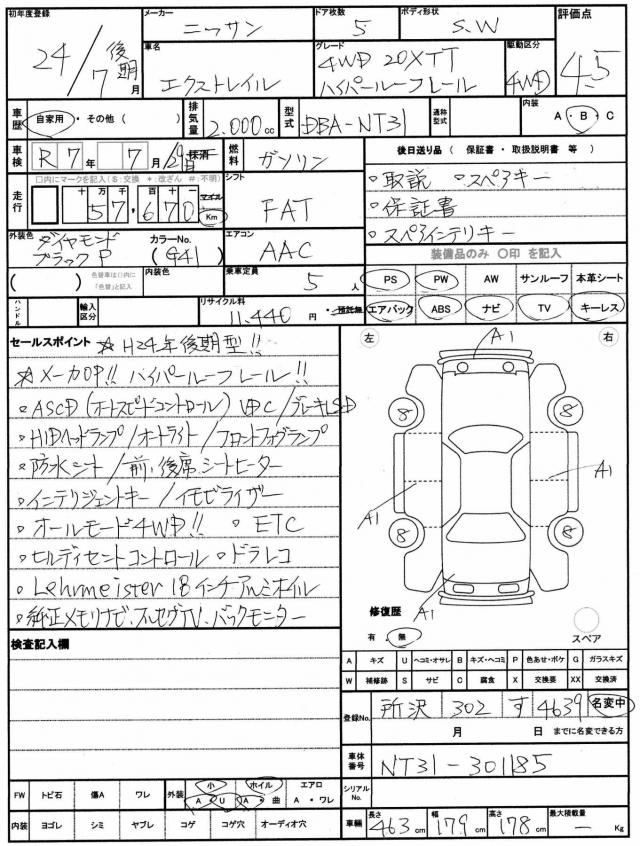 初年度登録 メーカー ニッサン ドア枚数 5 ボディ形状 S.W 評価点
24/7 後期 月 車名 エクストレイル グレード 4WD 20XTT ハイパールーフレール 駆動区分 4WD 4.5
車歴 自家用・その他( ) 排気量 2.000 cc 型式 DBA-NT31 通称型式 内装 A・B・C
車検 R7年 7月 抹消 燃料 ガソリン 後日送り品( 保証書・取扱説明書 等 )
走行 □内にマークを記入(S:交換 *:改ざん #:不明)
十 万 千 百 十 一 マイル
57,670 Km シフト FAT
・取説 ・スペアキー
・保証書
・スペアインテリキー
外装色 ダイヤモンドブラックP カラーNo. (G41) エアコン AAC
装備品のみ ○印を記入
( ) 色替車は()内に「色替」と記入 内装色 乗車定員 5 人
PS PW AW サンルーフ 本革シート
エアバック ABS ナビ TV キーレス
ハンドル 輸入区分 リサイクル料 11,440 円・預託無
セールスポイント ☆H24年後期型!!
☆メーカOP!! ハイパールーフレール!!
・ASCD(オートスピードコントロール) VDC/ブレーキLSD
・HIDヘッドランプ/オートライト/フロントフォグランプ
・防水シート/前、後席シートヒーター
・インテリジェントキー/イモビライザー
・オールモード4WD!! ・ETC
・ヒルディセントコントロール ・ドラレコ
・Lehrmeister 18インチアルミホイル
・純正メモリナビ、フルセグTV、バックモニター
左 右
A1
8 8
A1 A1
8 8
A1
修復歴
有・無 スペア
検査記入欄
A キズ U ヘコミ・オサレ B キズ・ヘコミ P 色あせ・ボケ G ガラスキズ
W 補修跡 S サビ C 腐食 X 交換要 XX 交換済
登録No. 所沢 302 す 4639 名変中
月 日 までに名変できる方
車体番号 NT31-301185
シリアルNo.
FW トビ石 傷A ワレ 外装 小 ホイル エアロ
A U A・曲 A・ワレ
内装 ヨゴレ シミ ヤブレ コゲ コゲ穴 オーディオ穴
車輛 長さ 463 cm 幅 179 cm 高さ 178 cm 最大積載量 — Kg